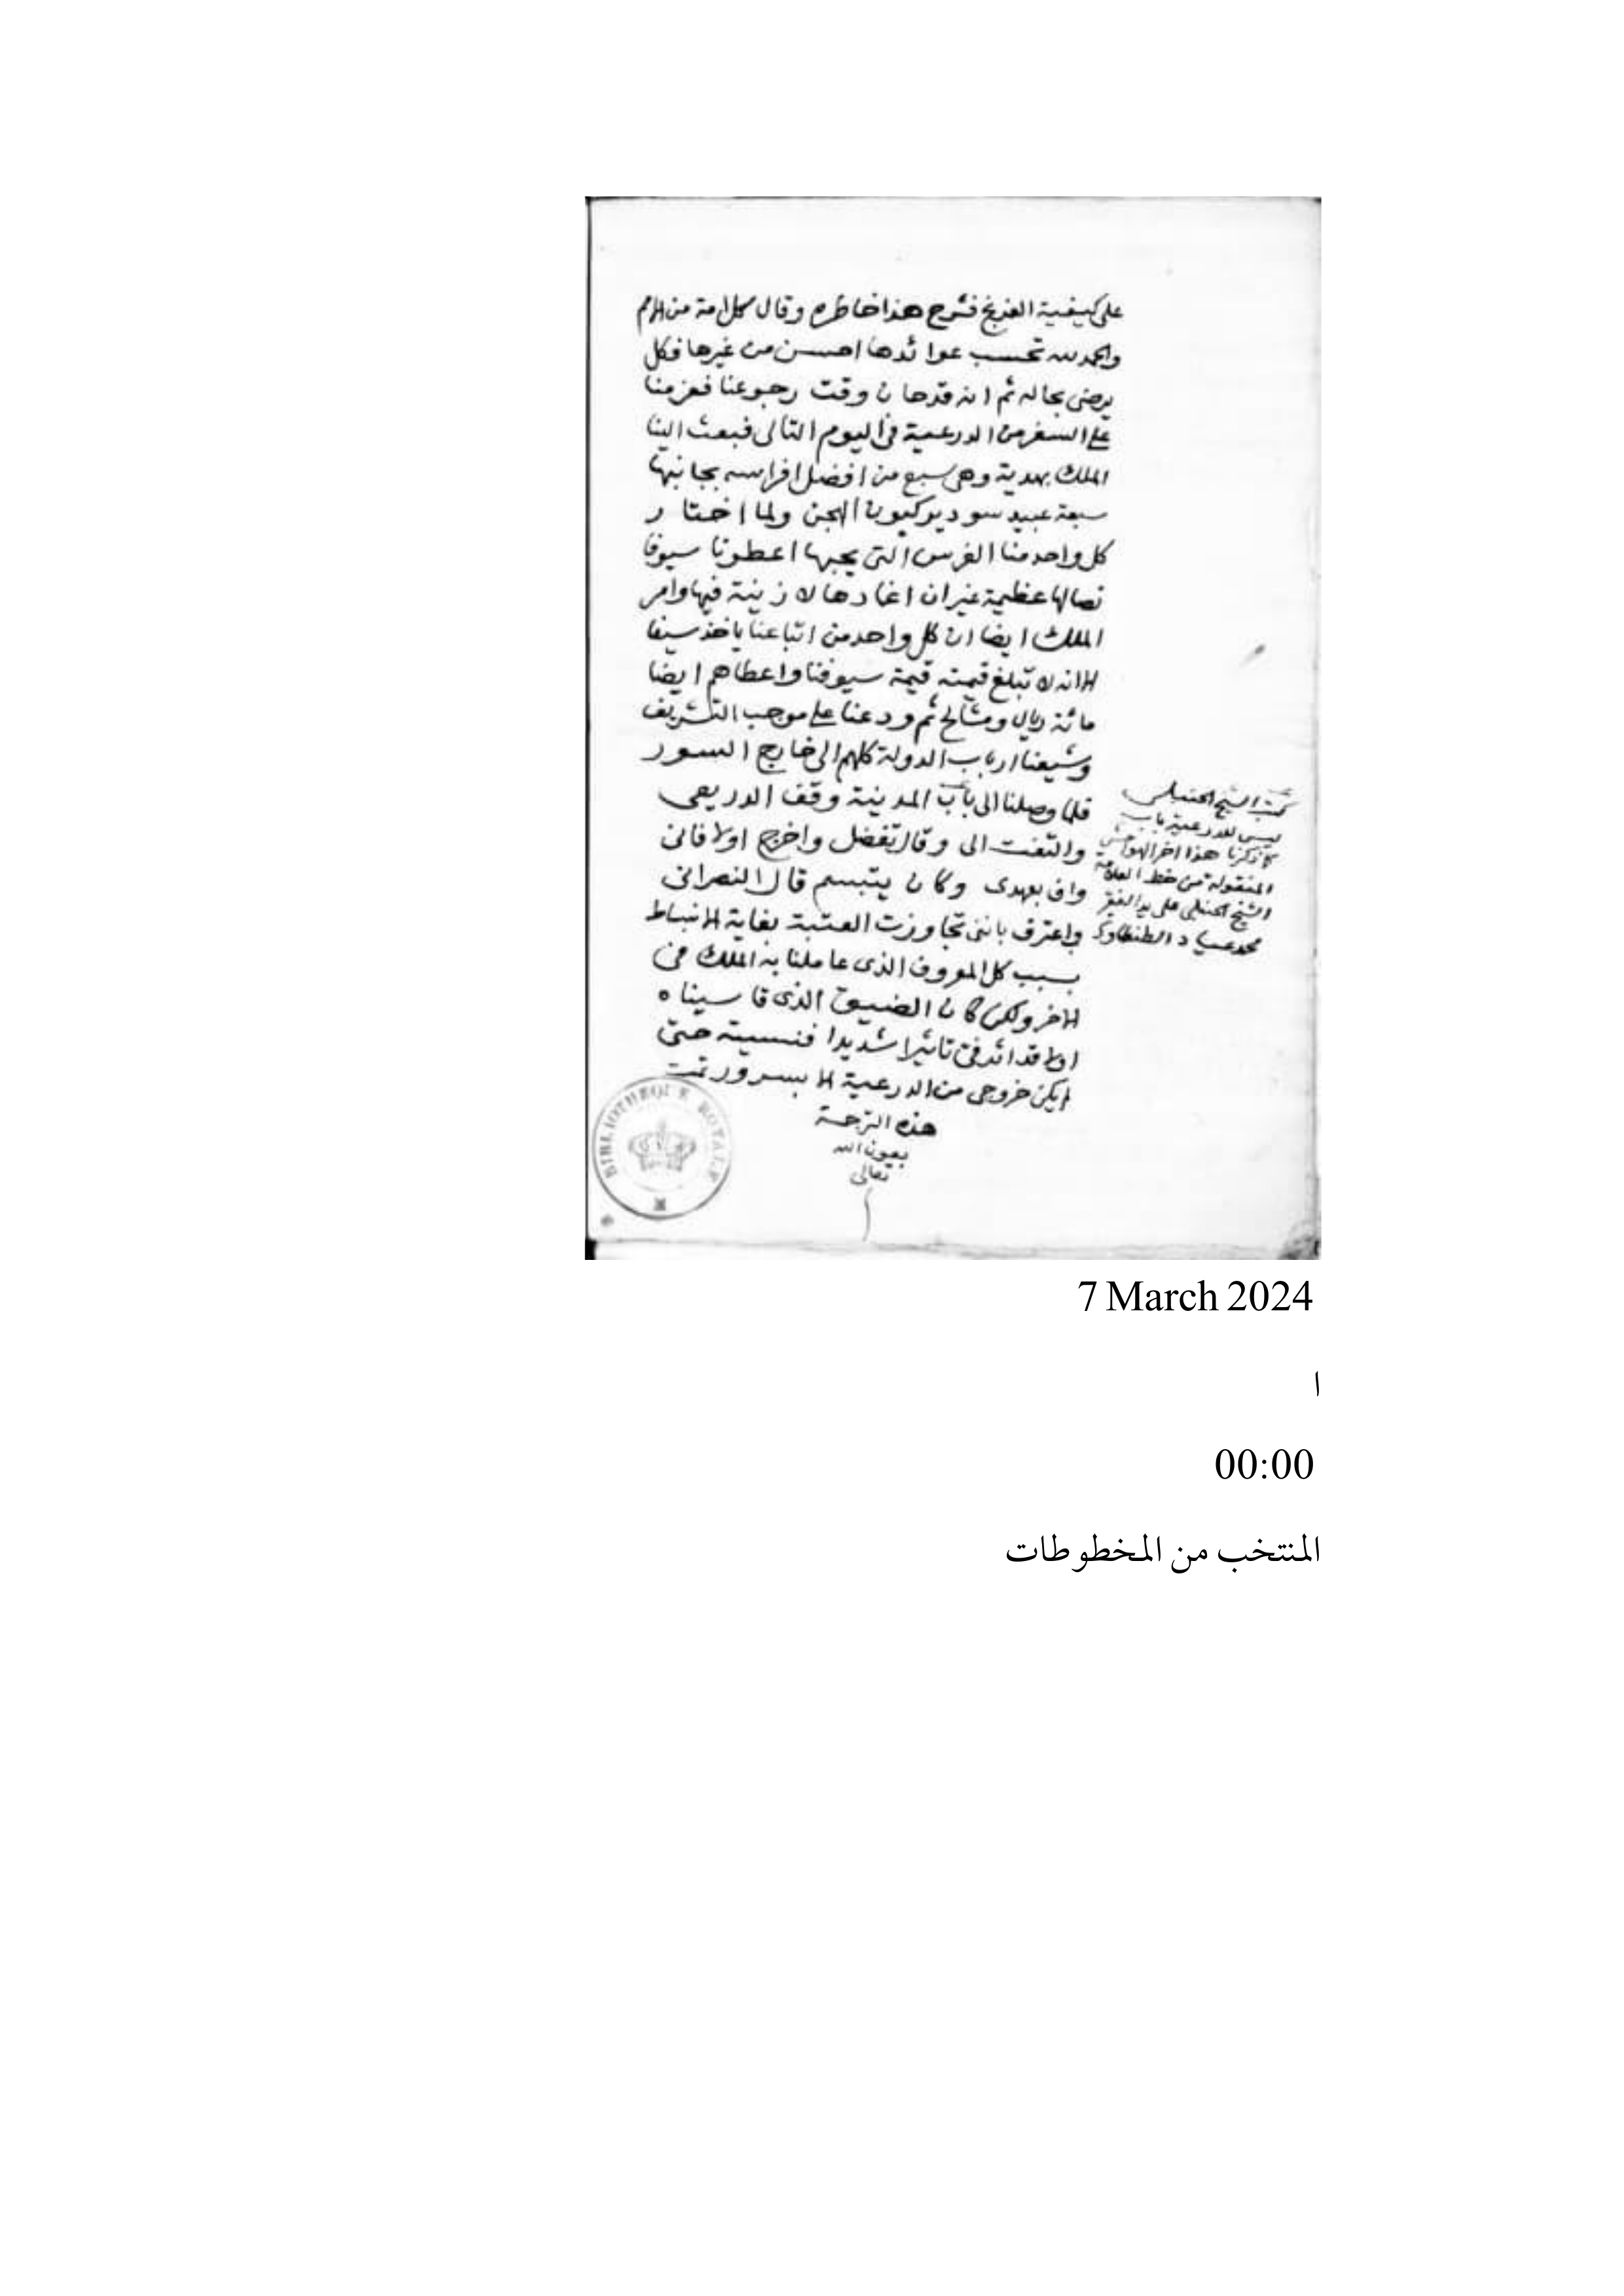 على كيفية الفرنج فشرح هذا خاطره وقال كل امة من الامم
والحمد لله تحسب عوائدها احسن من غيرها فكل
يرضى بحاله ثم انه قد حان وقت رجوعنا فعزمنا
على السفر من الدرعية فى اليوم التالى فبعث الينا
الملك بهدية وهى سبع من افضل افراسه بجانبها
سبعة عبيد سود يركبون الهجن ولما اختار
كل واحد منا الفرس التى يحبها اعطونا سيوفا
نصالها عظيمة غير ان اغمادها لا زينة فيها وامر
الملك ايضا ان كل واحد من اتباعنا ياخذ سيفا
الا انه لا تبلغ قيمته قيمة سيوفنا واعطاهم ايضا
مائة ريال ومشالح ثم ودعنا على موجب التشريف
وشيعنا ارباب الدولة كلهم الى خارج السور
فلما وصلنا الى باب المدينة وقف الدريعى
والتفت الى وقال تفضل واخرج اولا فانى
واف بعهدى وكان يتبسم قال النصرانى
واعترف باننى تجاوزت العتبة بغاية الانبساط
بسبب كل المعروف الذى عاملنا به الملك فى
الاخر ولكن كان الضيق الذى قاسيناه
اولا قد اثر فى تاثيرا شديدا فنسيته حتى
لم يكن خروجى من الدرعية الا بسرور تمت
هذه الترجمة
بعون الله
تعالى
كتب الشيخ الحنبلى
ليس للدرعية باب
كما ذكرنا هذا اخر الهوامش
المنقولة من خط العلامة
الشيخ الحنبلى على يد الفقير
محمد عياد الطنطاوى
BIBLIOTHEQUE ROYALE
7 March 2024
ا
00:00
المنتخب من المخطوطات